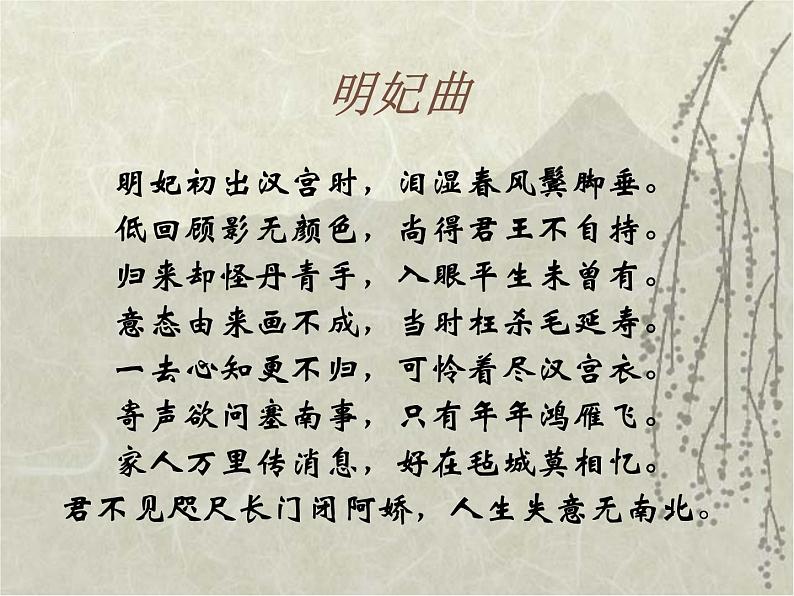 明妃曲
明妃初出汉宫时，泪湿春风鬓脚垂。
低回顾影无颜色，尚得君王不自持。
归来却怪丹青手，入眼平生未曾有。
意态由来画不成，当时枉杀毛延寿。
一去心知更不归，可怜着尽汉宫衣。
寄声欲问塞南事，只有年年鸿雁飞。
家人万里传消息，好在毡城莫相忆。
君不见咫尺长门闭阿娇，人生失意无南北。